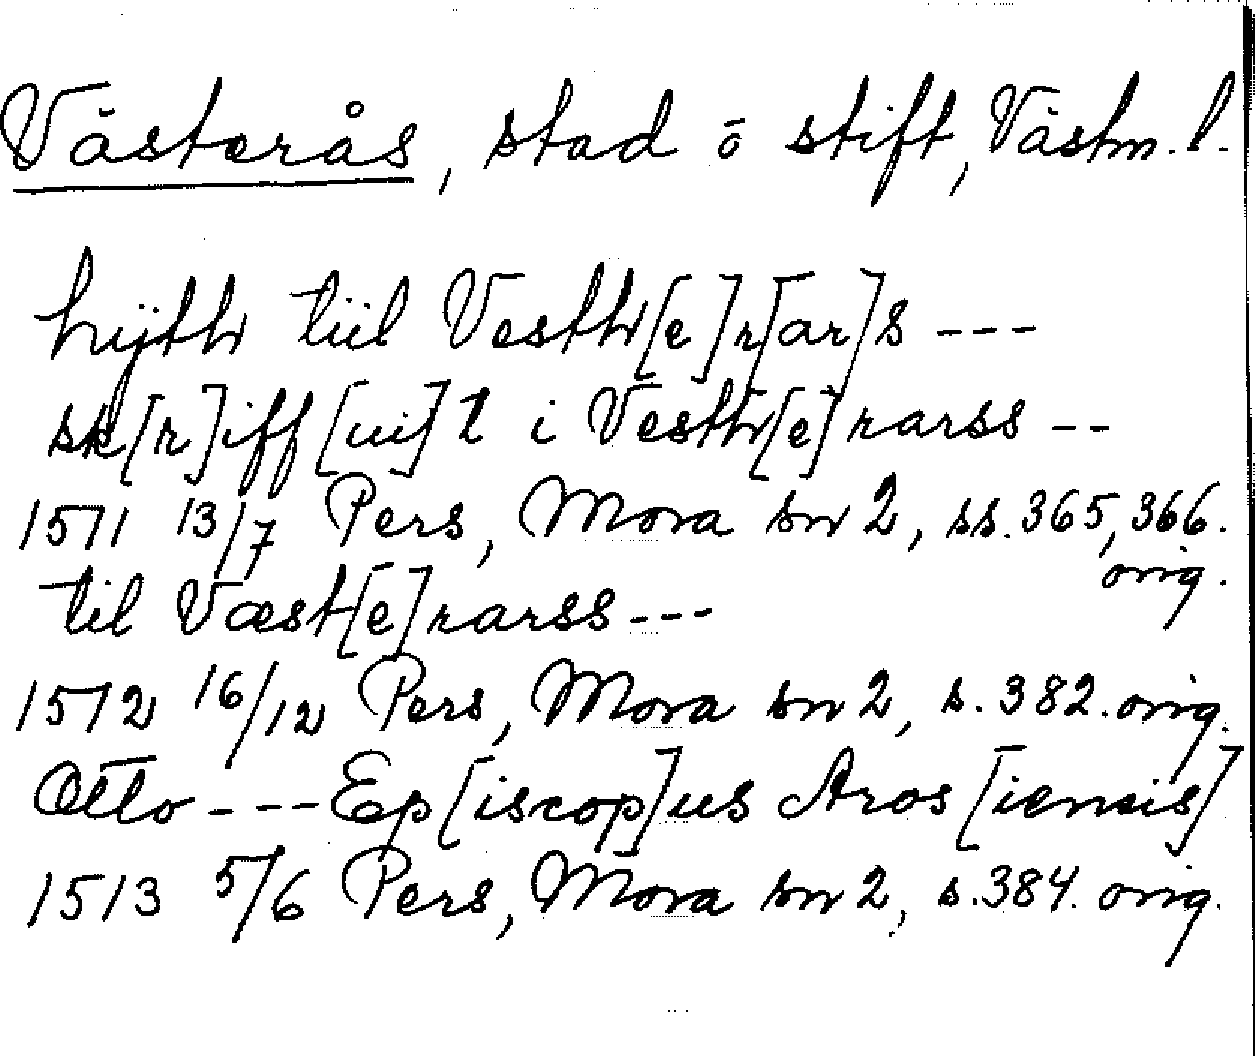 Västerås, stad o stift, Västm. l.
hijth tiil Vesth[e]r[ar]s ---
sk[r]iff[ui]t i Vesth[e]rarss --
1511 13/7 Pers, Mora sn 2, ss. 365, 366.
orig.
til Væst[e]rarss ---
1512 16/12 Pers, Mora sn 2, s. 382. orig.
Otto --- Ep[iscop]us Aros[iensis]
1513 5/6 Pers, Mora sn 2, s. 384. orig.